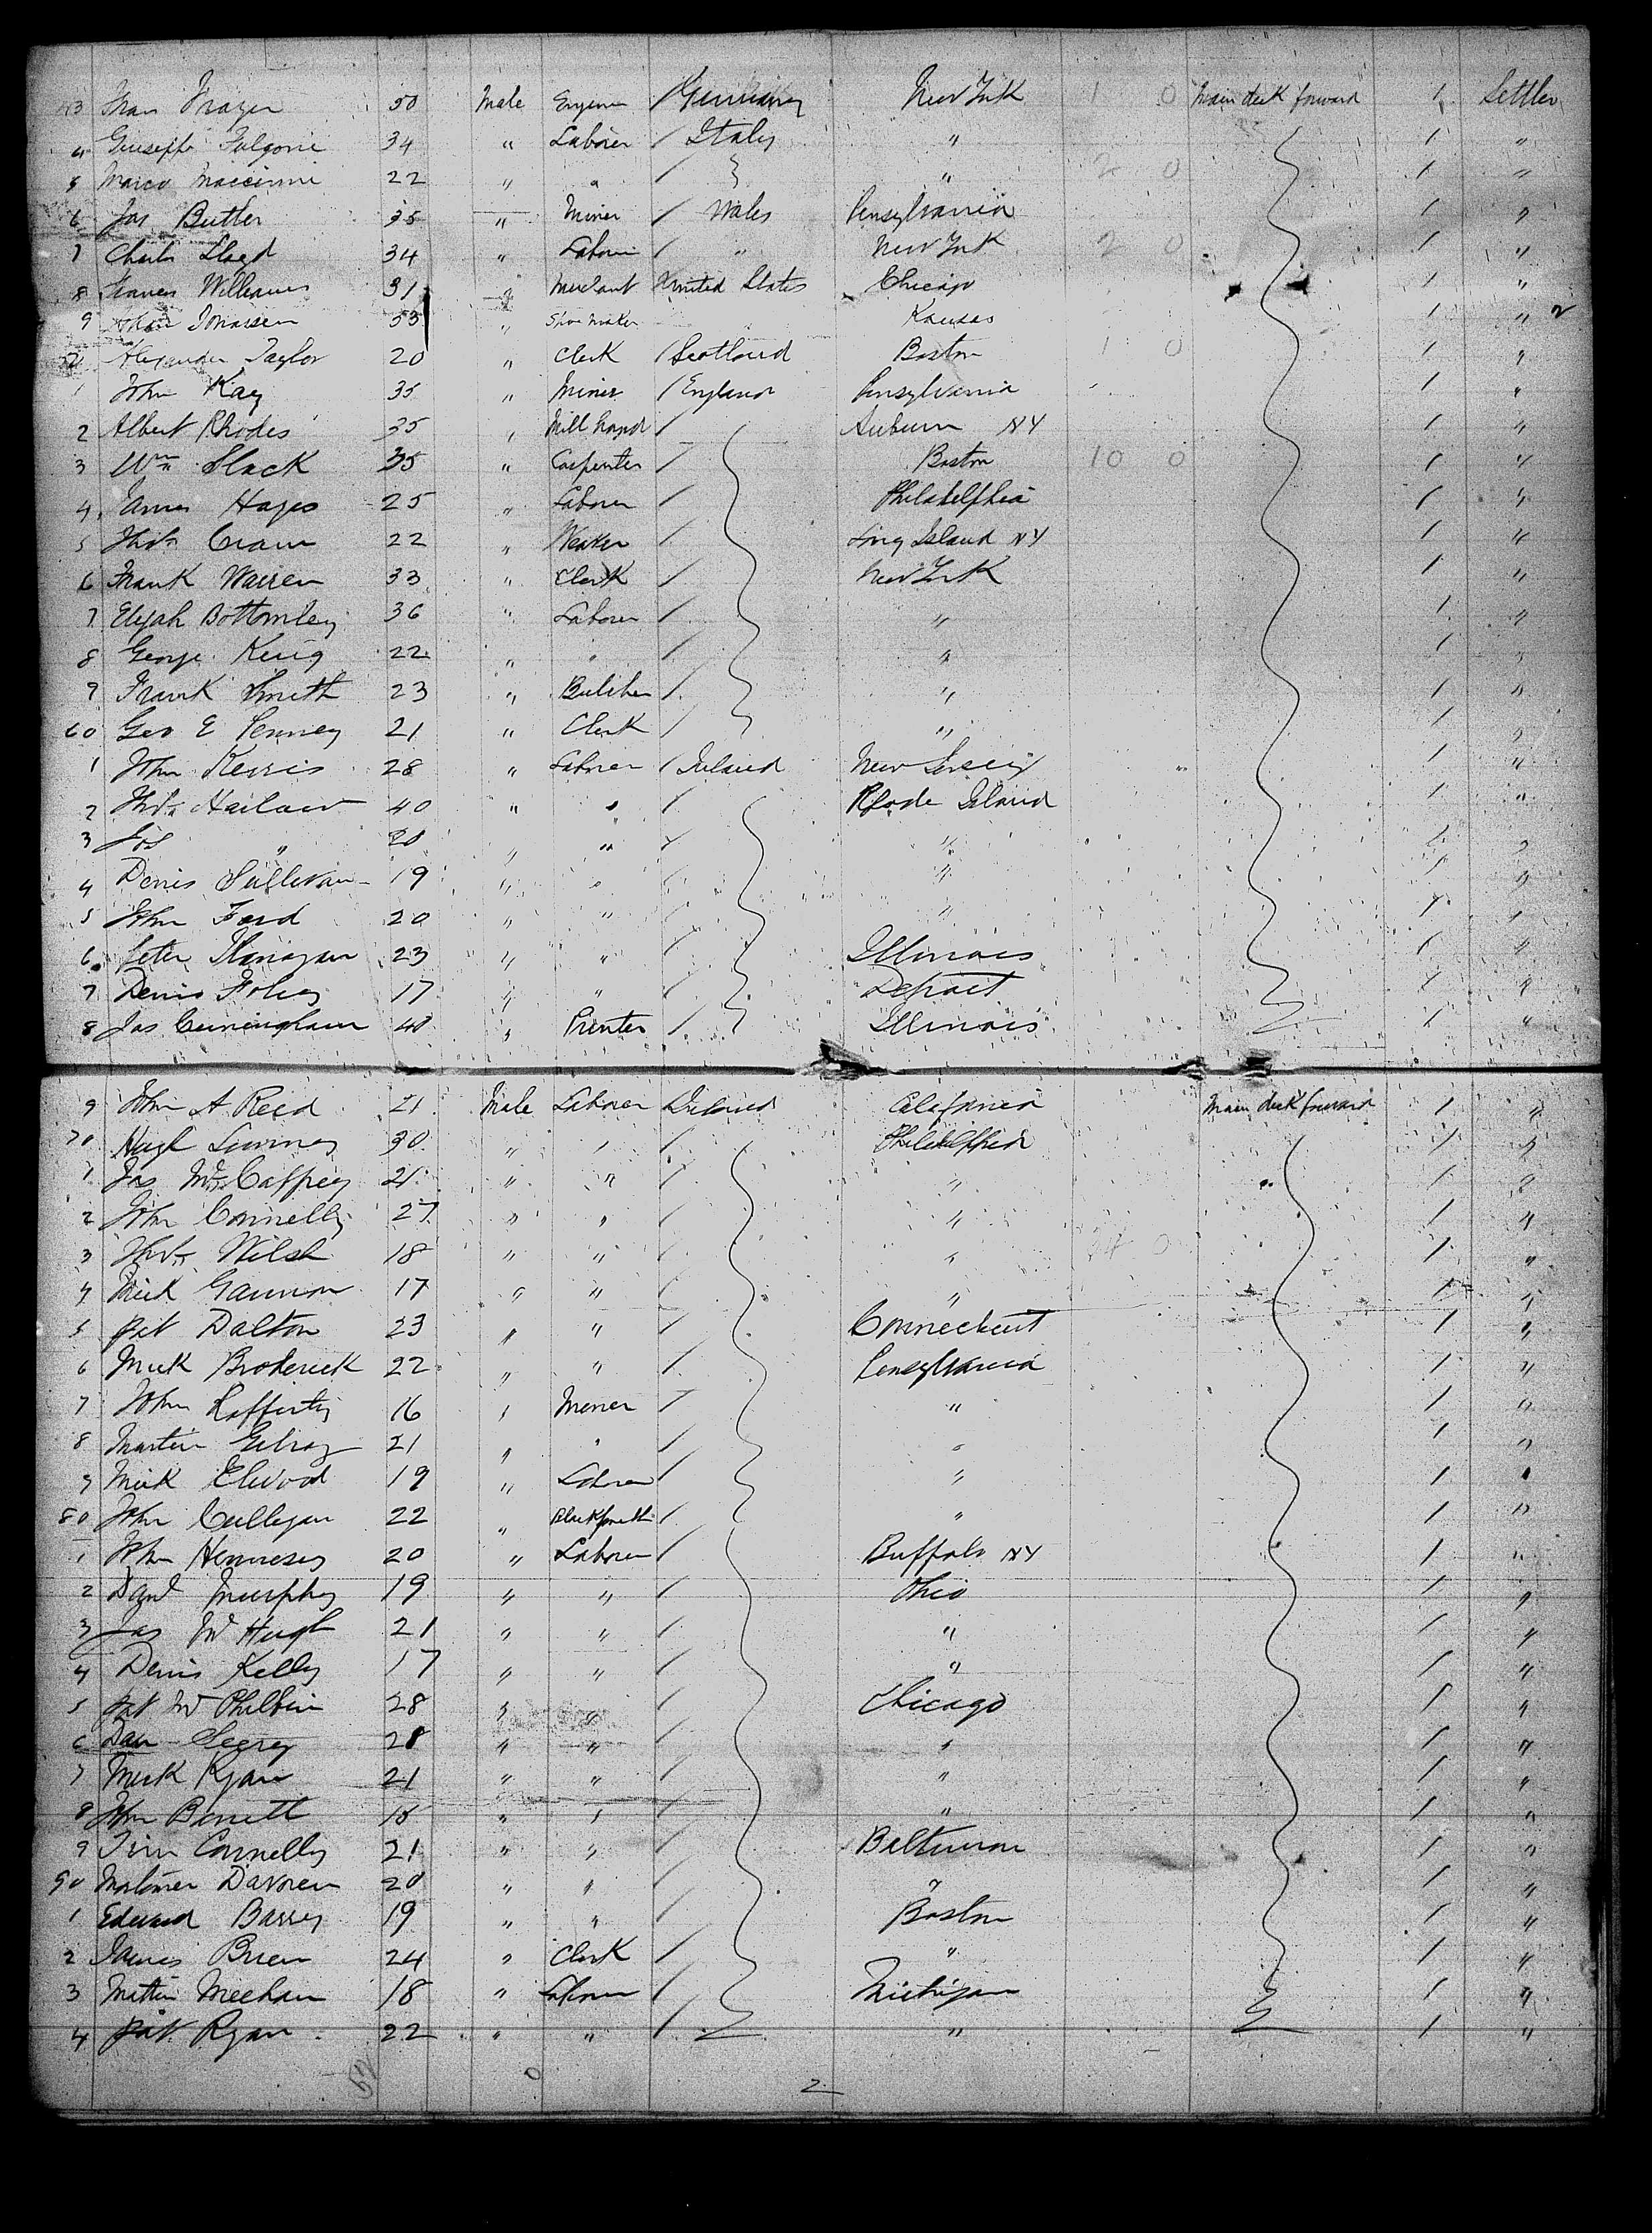 43 Fran Frazer 50 Male Engener Germany New York 1 0 Main deck forward 1 Settler
4 Giuseppe Fulgoni 34 " Laborer / Italy " 1 "
5 Marco 22 " " / " 2 0 1 "
6 Jas Butler 35 " Miner / Wales Pensylvania 1 "
7 Charles Lloyd 34 " Laborer / " New York 2 0 1 "
8 Williams 31 " Merchant United States Chicago 1 "
9 Johan 53 " Shoe maker Kansas 1 " 2
50 Alexander Taylor 20 " Clerk / Scotland Boston 1 0 1 "
1 John Kay 35 " Miner / England Pensylvania 1 "
2 Albert Rhodes 35 " Mill hand / Auburn NY 1 "
3 Wm Slack 35 " Carpenter / Boston 10 0 1 "
4 James Hayes 25 " Laborer / Philadelphia 1 "
5 Thos 22 " Weaver / Long Island NY 1 "
6 Frank Warren 33 " Clerk / New York 1 "
7 Elijah Bottomley 36 " Laborer / " 1 "
8 George King 22 " " / " 1 "
9 Frank Smith 23 " Butcher / " 1 "
60 Geo E Penney 21 " Clerk / " 1 "
1 John Kerris 28 " Laborer / Ireland New Jersey 1 "
2 Thos 40 " " / Rhode Island 1 "
3 Jos " 20 " " / " 1 "
4 Denis Sullivan 19 " " / " 1 "
5 John Ford 20 " " / " 1 "
6 Peter Flanagan 23 " " / Illinois 1 "
7 Denis Foley 17 " " / Detroit 1 "
8 Jas Cunningham 40 " Printer / Illinois 1 "
9 John A Reed 21 Male Laborer Ireland California Main deck forward 1 "
70 Hugh 30 " " / Philadelphia 1 "
1 Jas McCaffrey 21 " " / " 1 "
2 John Connelly 27 " " / " 1 "
3 Thos Wilsh 18 " " / " 24 0 1 "
4 Mick Gannon 17 " " / " 1 "
5 Pat Dalton 23 " " / Connecticut 1 "
6 Mick Broderick 22 " " / Pensylvania 1 "
7 John Rafferty 16 " Miner / " 1 "
8 Martin Gilroy 21 " " / " 1 "
9 Mick Elwood 19 " Laborer / " 1 "
80 John Culligan 22 " Blacksmith / " 1 "
1 John Hennesey 20 " Laborer / Buffalo NY 1 "
2 Danl Murphy 19 " " / Ohio 1 "
3 Jas McHugh 21 " " / " 1 "
4 Denis Kelly 17 " " / " 1 "
5 Pat McPhilbin 28 " " / Chicago 1 "
6 Dan 28 " " / " 1 "
7 Mick Ryan 21 " " / " 1 "
8 John Bennett 18 " " / " 1 "
9 Tim Connelly 21 " " / Baltimore 1 "
90 Mortimer Davoren 20 " " / " 1 "
1 Edward Barry 19 " " / Boston 1 "
2 James Brien 24 " Clerk / " 1 "
3 Mattin Meehan 18 " Laborer / Michigan 1 "
4 Pat Ryan 22 " " / " 1 "
52 0 2